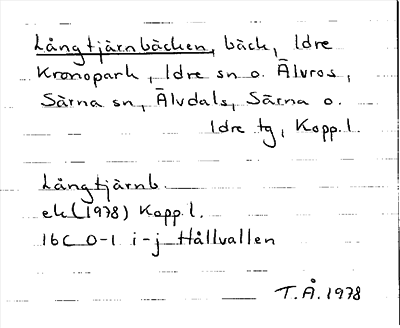 Långtjärnbäcken, bäck, Idre
Kronopark, Idre sn o. Älvros,
Särna sn, Älvdals, Särna o.
Idre tg, Kopp.l.
Långtjärnb.
ek (1978) Kopp.l.
16C 0-1 i-j Hållvallen
T.Å. 1978